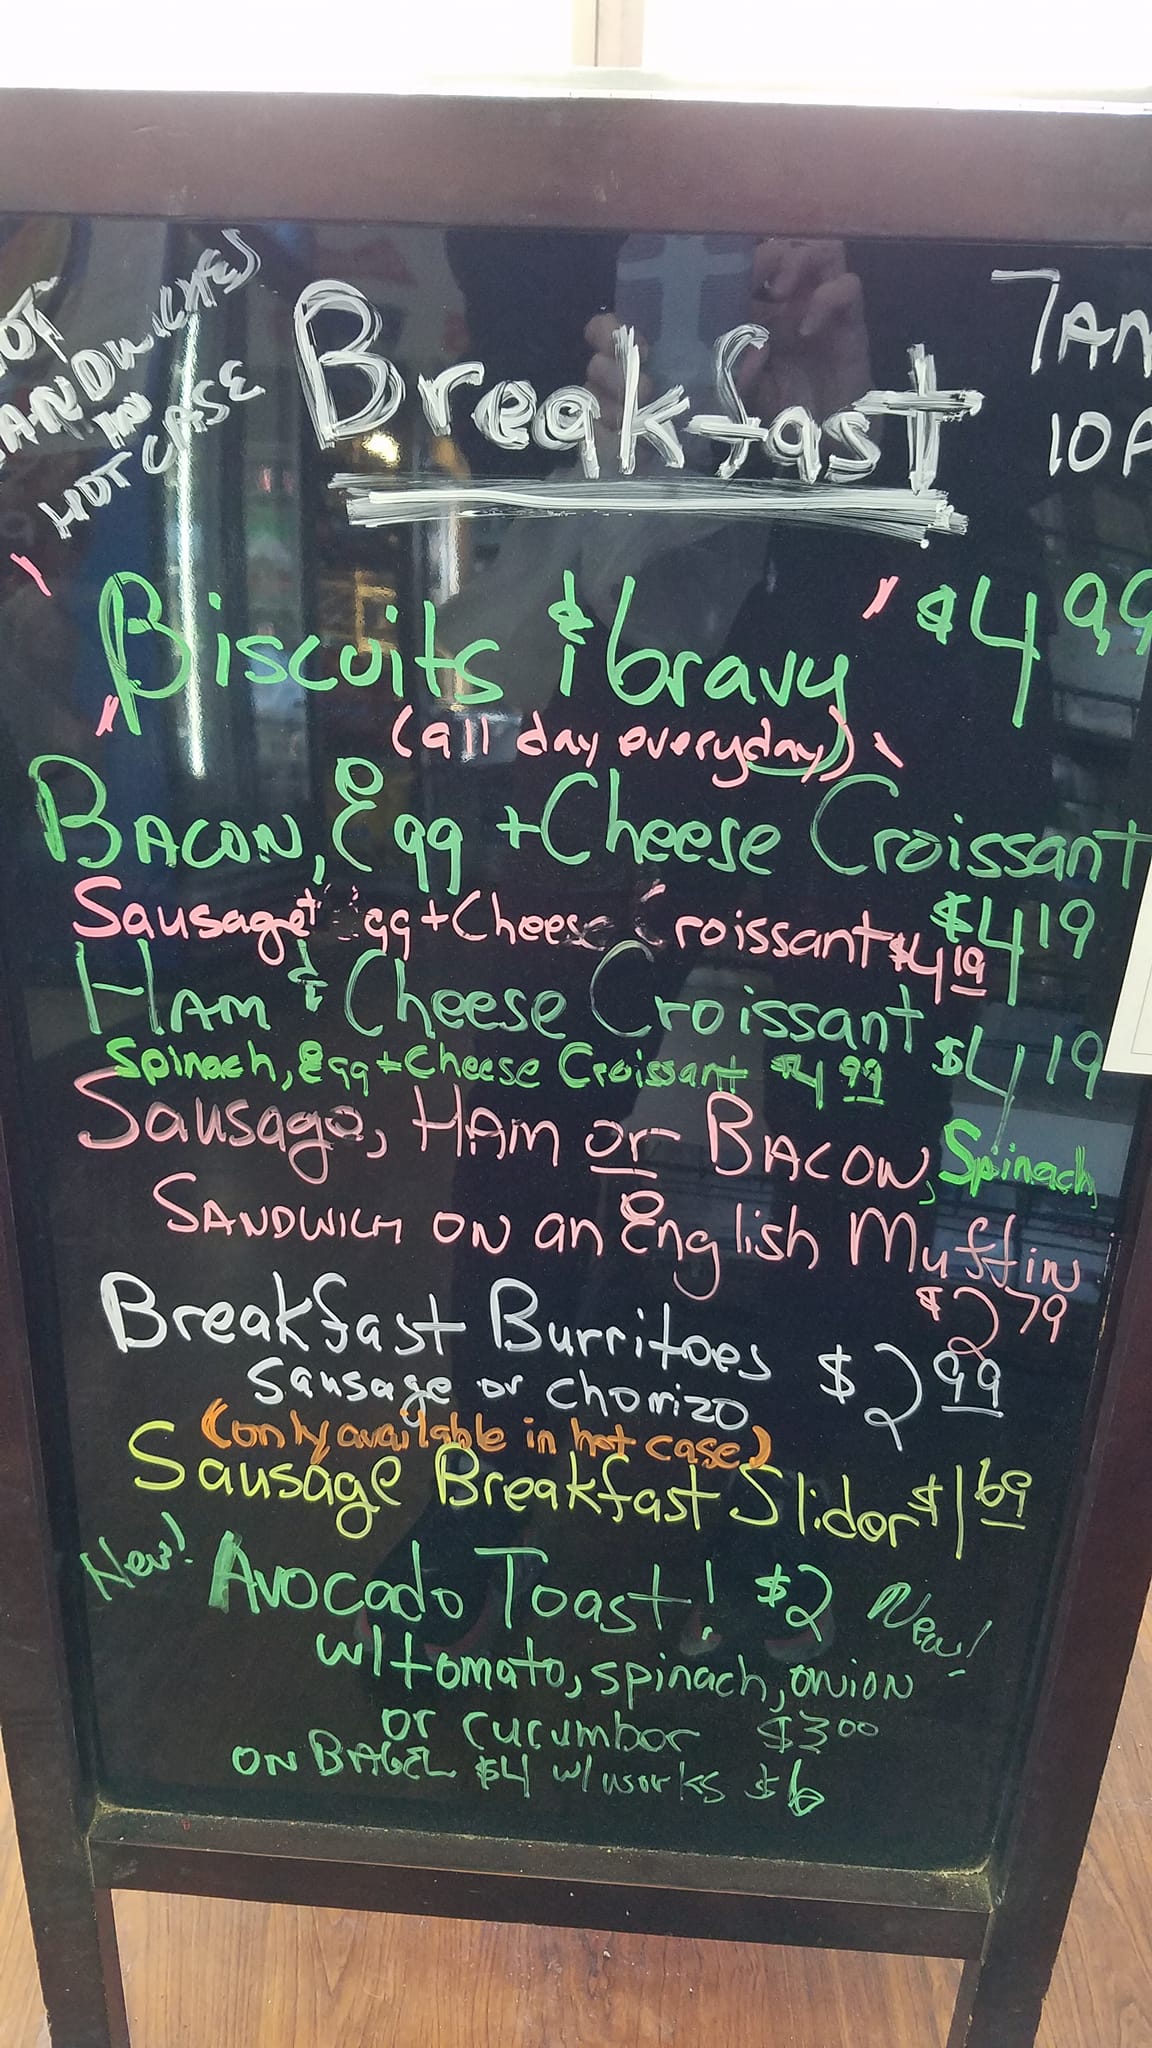 HOT
SANDWICHES
IN
HOT CASE
Breakfast
7AM
10P
Biscuits & Gravy $4.99
(all day everyday)
BACON, Egg + Cheese Croissant
$4 19
Sausage + Egg + Cheese Croissant $4 19
HAM & Cheese Croissant
$4 19
Spinach, Egg + Cheese Croissant $4 99
Sausage, HAM or BACON, Spinach,
SANDWICH ON an English Muffin
$2 79
Breakfast Burritoes $2 99
Sausage or Chorizo
(only available in hot case)
Sausage Breakfast Slider $1 69
New! Avocado Toast! $2 New!
w/ tomato, spinach, onion
or cucumber $3 00
ON BAGEL $4 w/ works $6